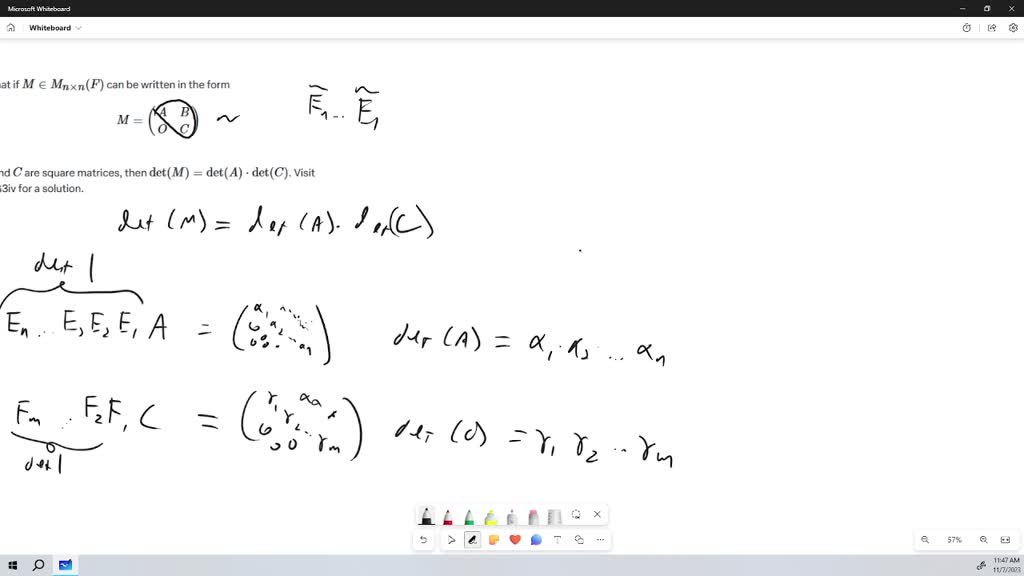 Microsoft Whiteboard
Whiteboard
at if M ∈ Mn×n(F) can be written in the form
M = (A B
O C) ~ Ẽn .. Ẽ1
nd C are square matrices, then det(M) = det(A) · det(C). Visit
3iv for a solution.
det (M) = det (A). det(C)
det 1
En .. E3 E2 E1 A = (α1 0 α2 0 0 .. αn) det (A) = α1 . α2 ... αn
Fm .. F2 F1 C = (γ1 γ2 0 0 .. γm) det (C) = γ1 γ2 .. γm
det 1
57%
11:47 AM
11/7/2023